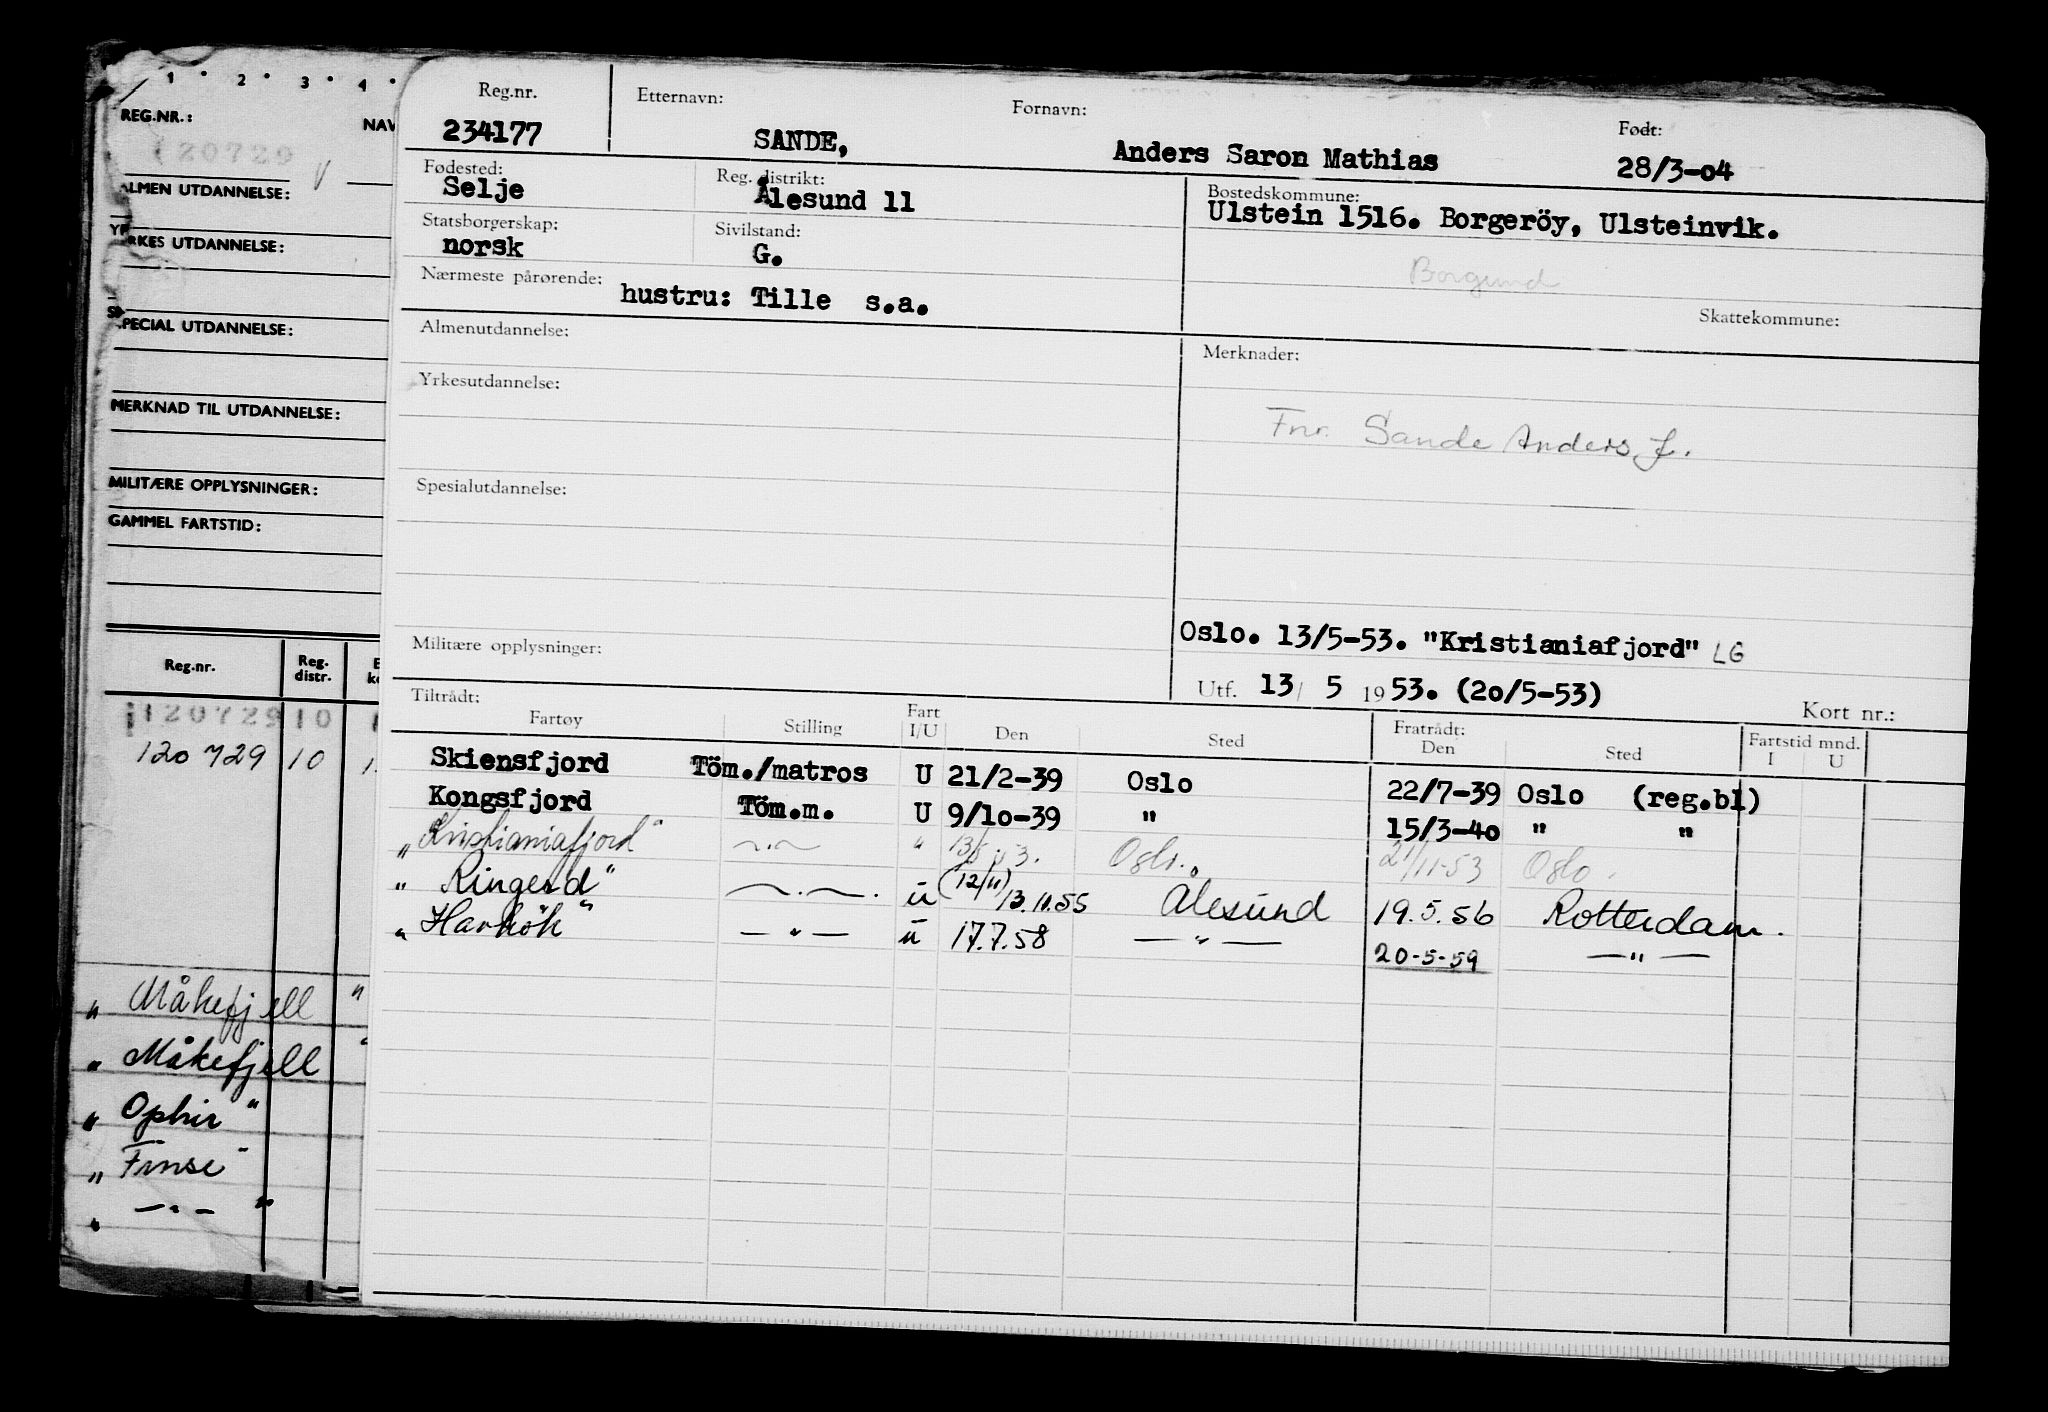 1 • 2 • 3 • 4 •
REG.NR.:
NAV
120729
ALMEN UTDANNELSE:
YRKES UTDANNELSE:
SPECIAL UTDANNELSE:
MERKNAD TIL UTDANNELSE:
MILITÆRE OPPLYSNINGER:
GAMMEL FARTSTID:
Reg.nr. Reg. distr.
120729 10
120729 10
„ Måkefjell "
„ Måkefjell "
„ Ophir "
„ Finse "
„ —„— "
Reg.nr. Etternavn: Fornavn: Født:
234177 SANDE, Anders Saron Mathias 28/3-04
Fødested: Reg. distrikt: Bostedskommune:
Selje Ålesund 11 Ulstein 1516. Borgeröy, Ulsteinvik.
Statsborgerskap: Sivilstand:
norsk G.
Borgund
Nærmeste pårørende: hustru: Tille s.a.
Skattekommune:
Almenutdannelse: Merknader:
Yrkesutdannelse:
Fnr. Sande Anders J.
Spesialutdannelse:
Militære opplysninger: Oslo. 13/5-53. "Kristianiafjord" LG
Utf. 13/ 5 1953. (20/5-53)
Kort nr.:
Tiltrådt: Fratrådt: Fartstid mnd.
Fartøy Stilling Fart I/U Den Sted Den Sted I U
Skiensfjord Töm./matros U 21/2-39 Oslo 22/7-39 Oslo (reg.bl)
Kongsfjord Töm.m. U 9/10-39 " 15/3-40 " "
„Kristianiafjord" —.— " 13/5 53. Oslo. 21/11-53 Oslo.
" Ringerd" —.—. ü (12/11) 13.11.55 Ålesund 19.5.56 Rotterdam.
„ Havkök " —„— ü 17.7.58 —„— 20-5-59 —„—